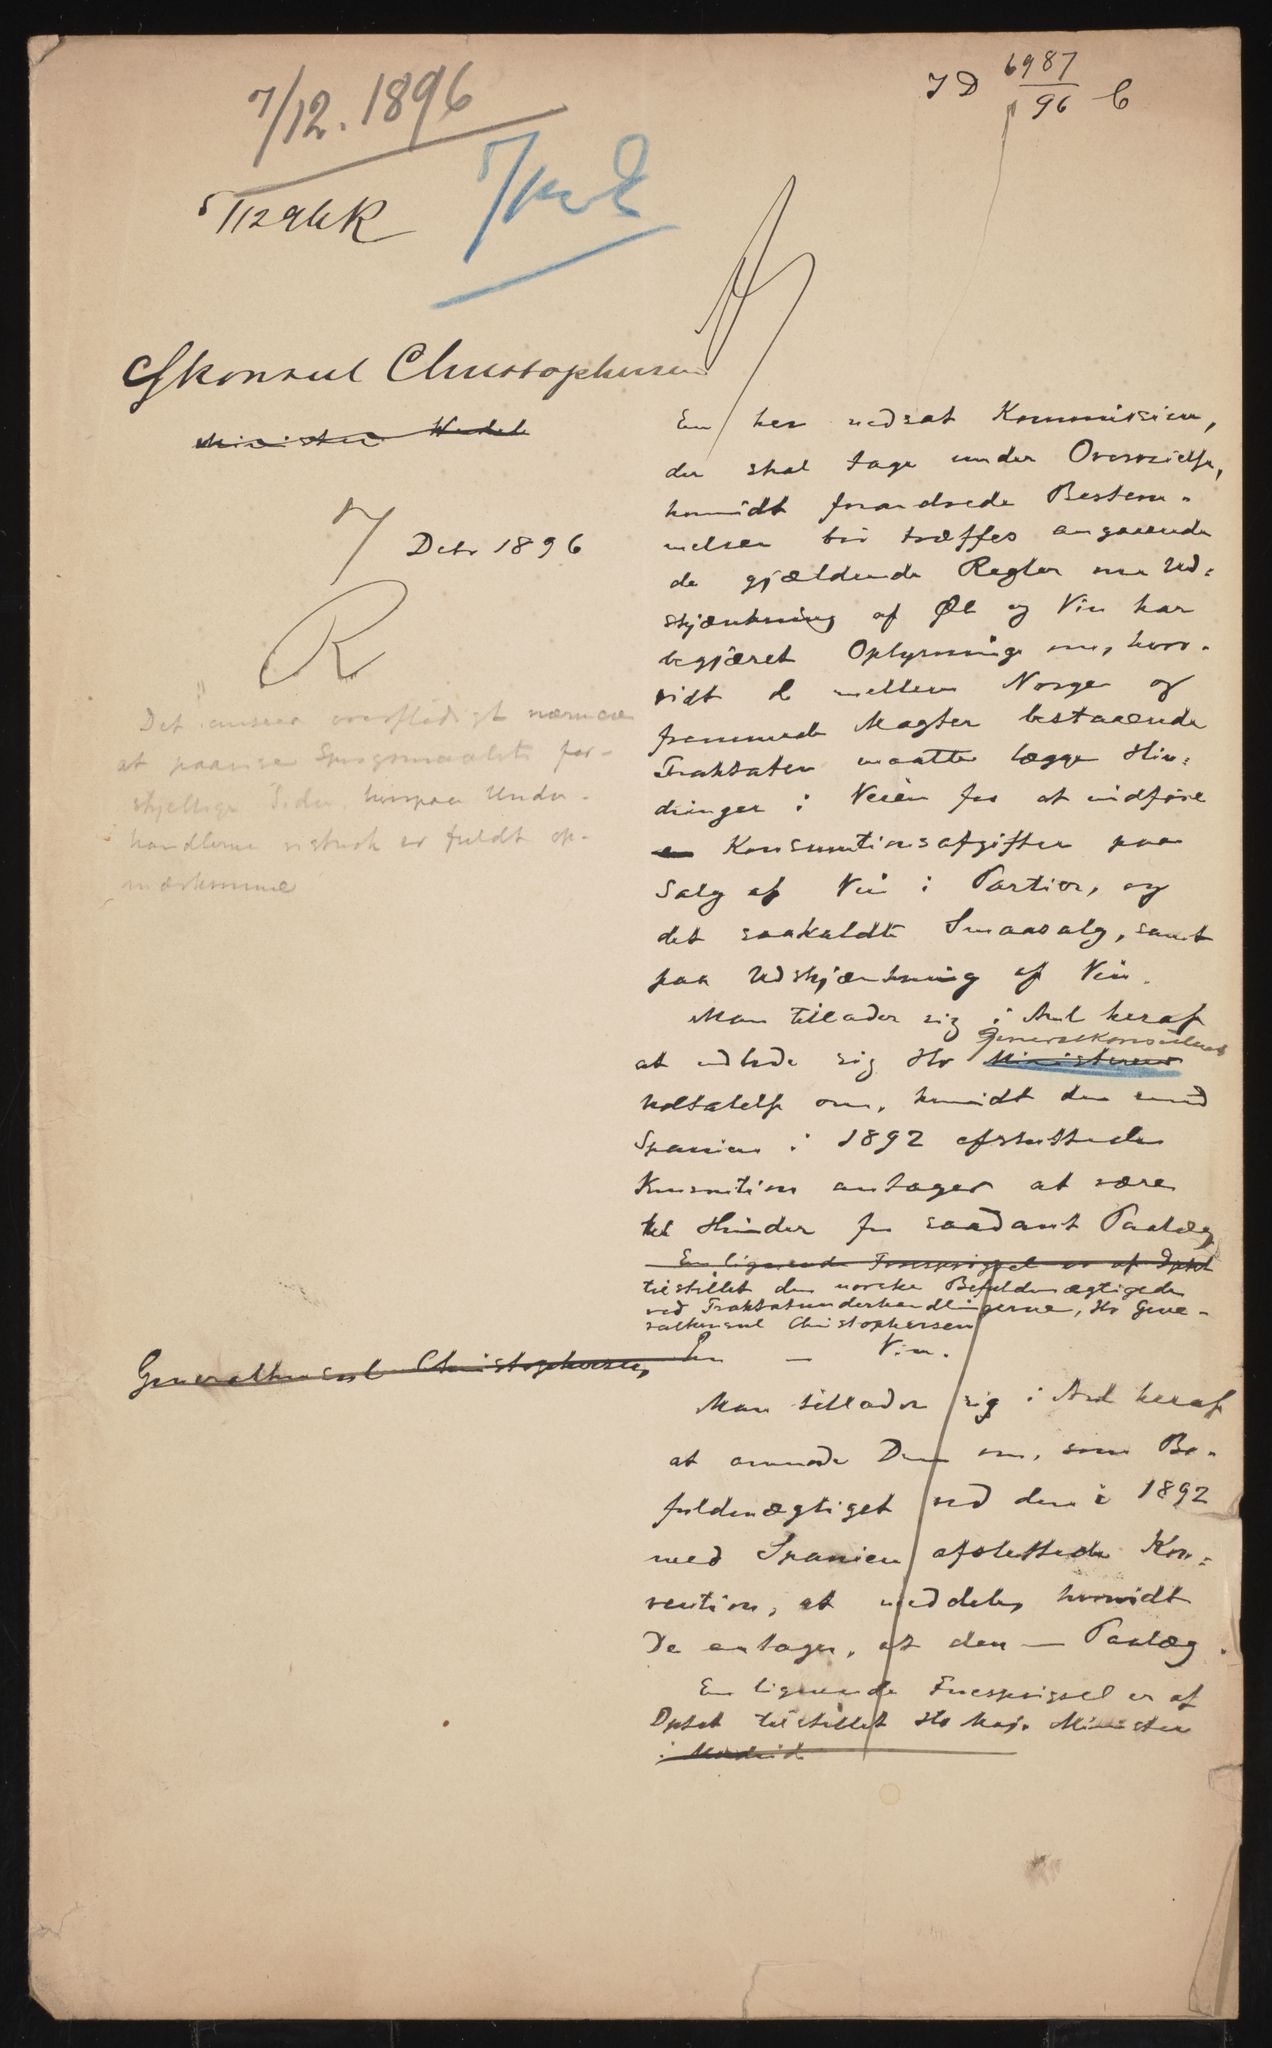 7/12. 1896
JD 6987/96 C
5/12 96 K
Gkonsul Christophersen
Minister Wedel
7 Debr 1896
R
Det ansees overflødigt nærmere
at paavise Spørgsmaalets for-
skjellige Sider, hvorpaa Under-
handlerne er fuldt op-
mærksomme
En her nedsat Kommission,
der skal tage under Overveielse,
hvorvidt forandrede Bestem-
melser bør træffes angaaende
de gjældende Regler om Ud-
skjænkning af Øl og Vin har
begjæret Oplysning om, hvor-
vidt de mellem Norge og
fremmede Magter bestaaende
Traktater maatte lægge Hin-
dringer i Veien for at indføre
en Konsumtionsafgifter paa
Salg af Vin i Partier, og
det saakaldte Smaasalg, samt
paa Udskjænkning af Vin.
Man tillader sig i Anl heraf
Generalkonsulens
at udbede sig Hr Ministerens
Udtalelse om, hvorvidt den med
Spanien i 1892 afsluttede
Konvention antages at være
til Hinder for saadant Paalæg
En ligerende Forespørgsel er af Dptet
tilstillet den norske Befuldmægtigede
ved Traktatunderhandlingerne, Hr Gene-
ralkonsul Christophersen
Generalkonsul Christophersen,
En — Vin.
Man tillader sig i Anl heraf
at anmode Dem om, som Be-
fuldmægtiget ved den i 1892
med Spanien afsluttede Kon-
vention, at meddele, hvorvidt
De antager, at den — Paalæg.
En lignende Forespørgsel er af
Dptet tilstillet Hs Maj. Minister
i Madrid